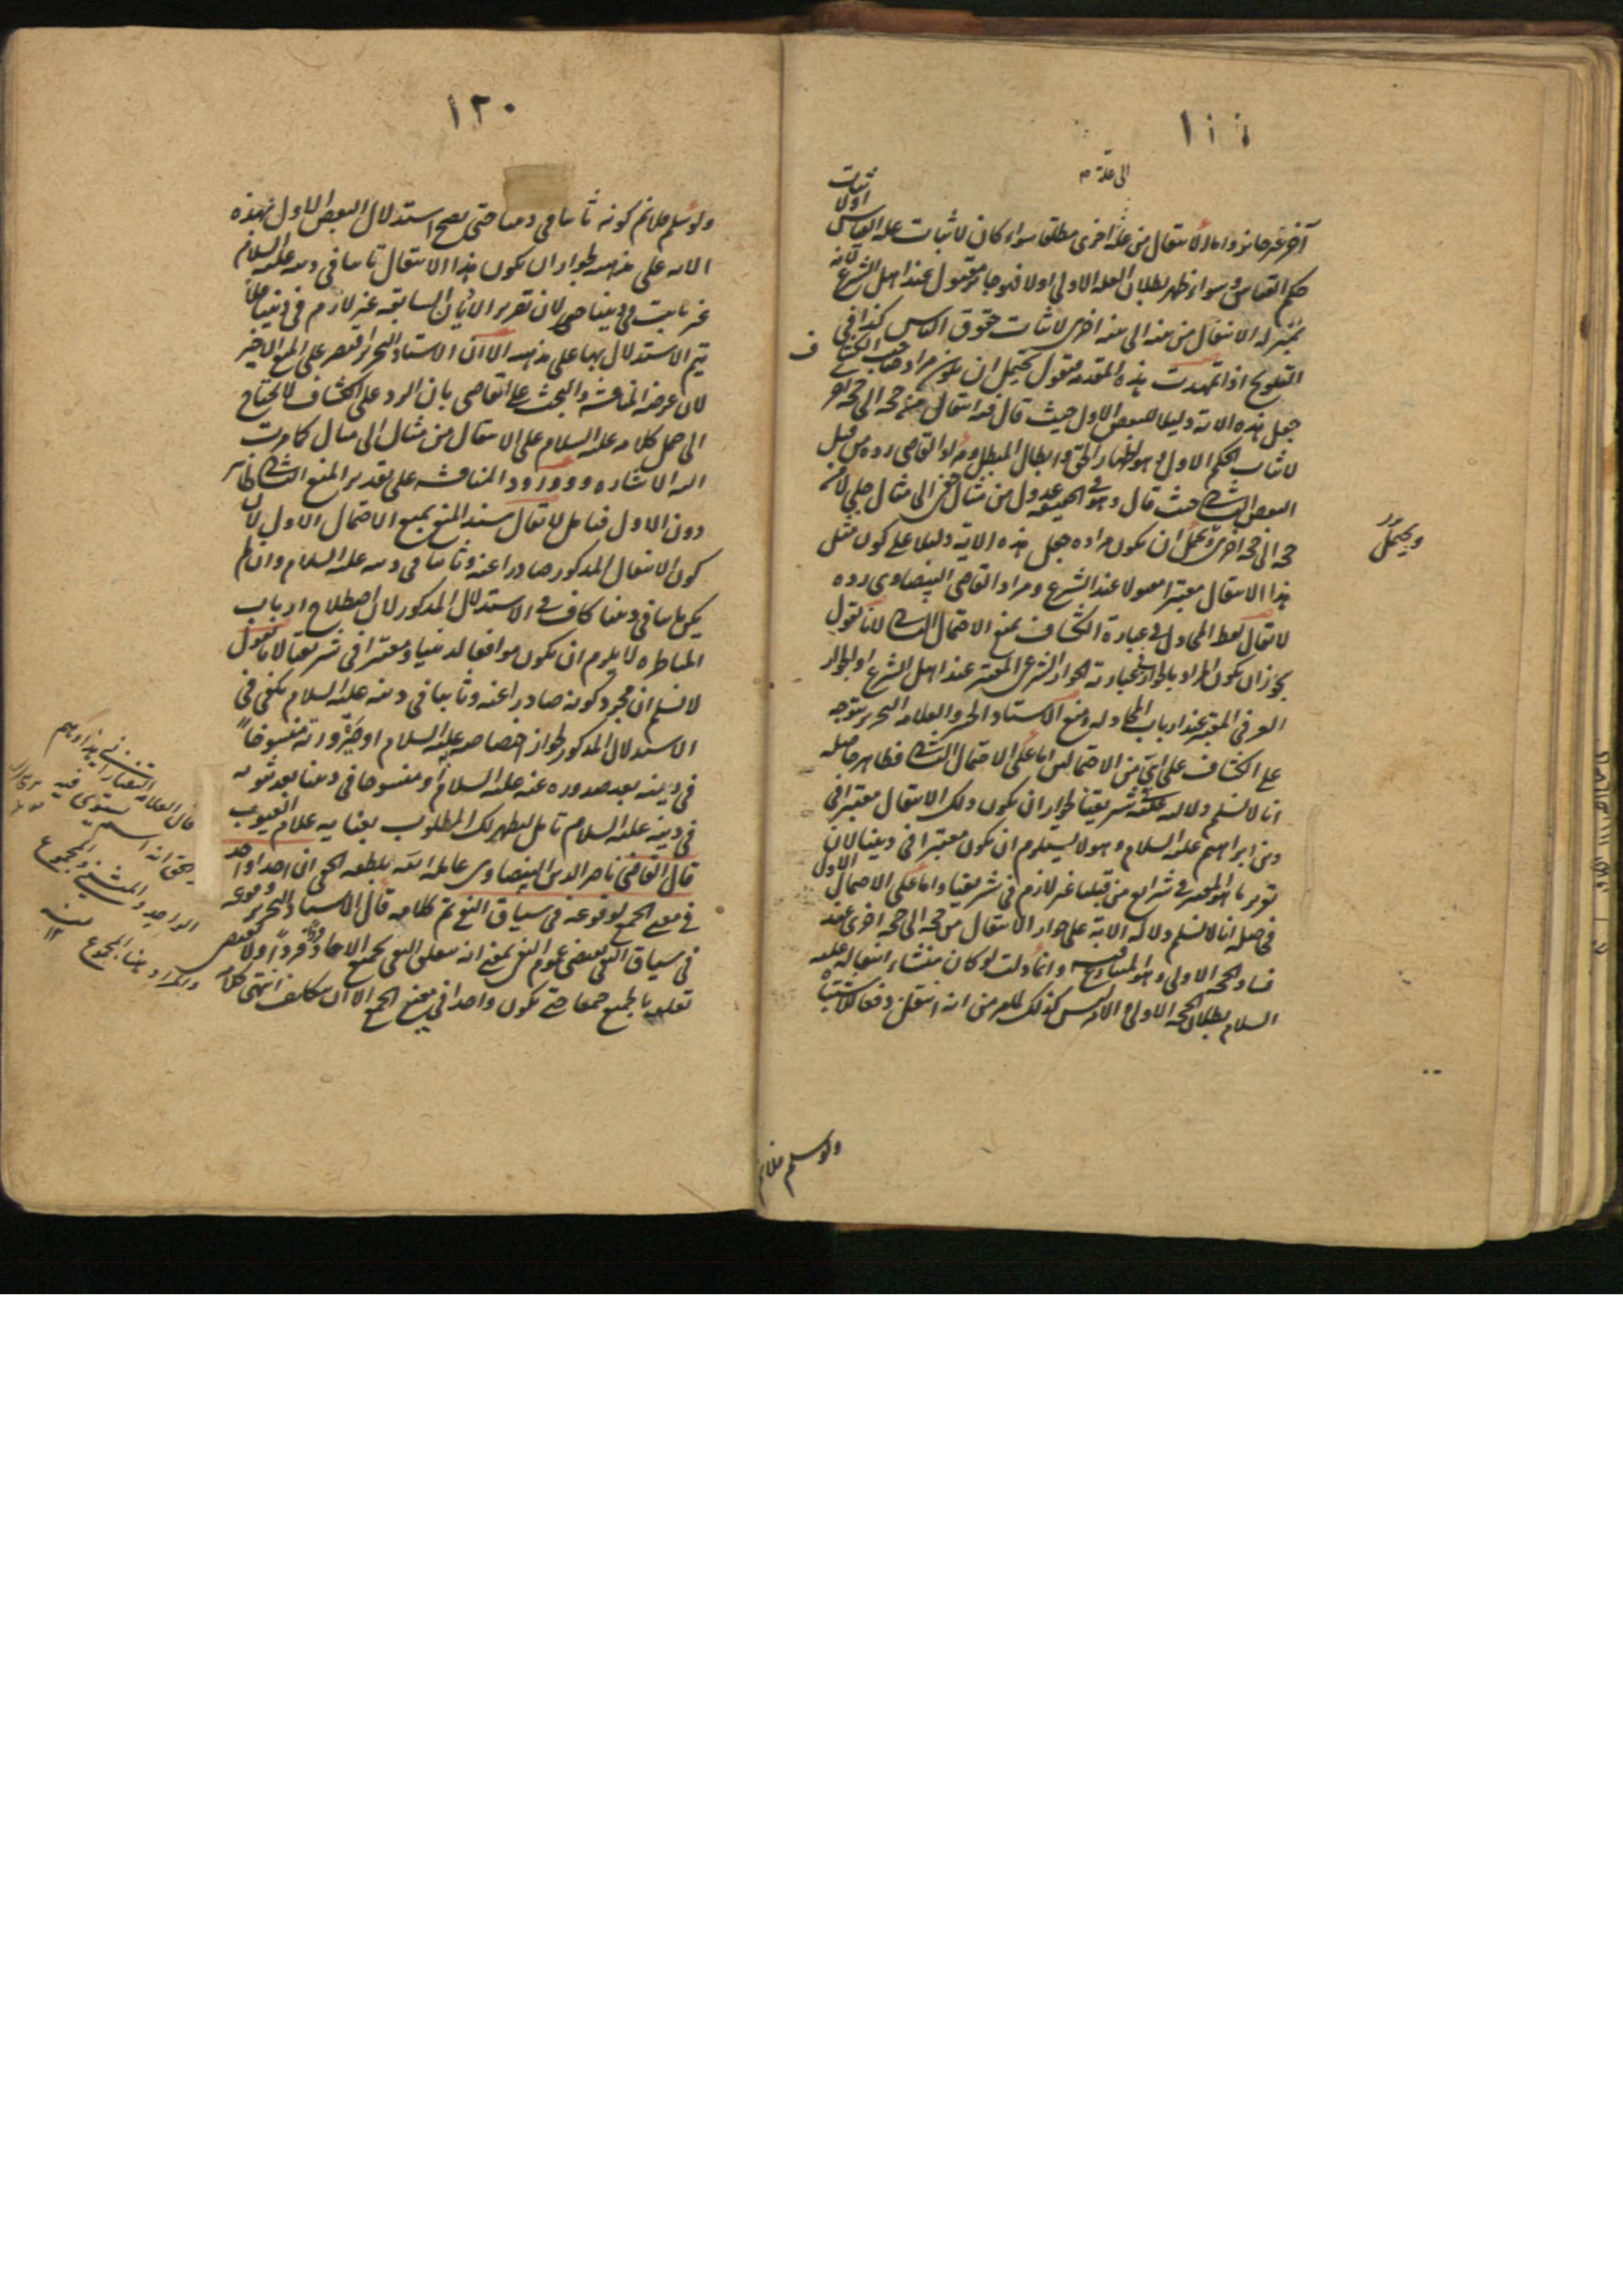 الى علة م
آخر غير جائز واما الانتقال من علة اخرى مطلقا سواء كان لاثبات علة القياس
اولا ثبات
حكم القياس وسواء ظهر بطلان العلة الاولى اولا فهو جائز مقبول عند اهل الشرع لانه
بمنزلة الانتقال من بينة الى بينة اخرى لاثبات حقوق الناس كذا في
التلويح اذا تمهدت هذه المقدمة فنقول يحتمل ان يكون مراد صاحب الكشاف
جعل هذه الاية دليلا للبعض الاول حيث قال فيه انتقال من حجة الى حجة اخر
لاثبات الحكم الاول وهو اظهار الحق وابطال المبطل ومراد القاضي رده من قبل
البعض الثاني حيث قال وهو في الحقيقة عدول من مثال خفي الى مثال جلي لا من
حجة الى حجة اخرى ويحتمل ان يكون مراده جعل هذه الاية دليلا على كون مثل
ويحتمل
هذا الانتقال معتبرا معمولا عند الشرع ومراد القاضي البيضاوي رده
لا يقال لفظ المجادل في عبارة الكشاف يمنع الاحتمال الثاني لانا نقول
يجوز ان يكون المراد بالجواز في عبارته الجواز الشرعي المعتبر عند اهل الشرع او الجواز
العرفي المعتبر عند ارباب المجادلة ومنع الاستاد الحر والعلامة النحرير يتوجه
على الكشاف على اي من الاحتمالين اما على الاحتمال الثاني فظاهر حاصله
انا لا نسلم دلالته على شريعتنا لجواز ان يكون ذلك الانتقال معتبرا في
دين ابراهيم عليه السلام وهو لا يستلزم ان يكون معتبرا في ديننا لان
تقرير ما هو المعتبر في شرايع من قبلنا غير لازم في شريعتنا واما على الاحتمال الاول
فحاصله انا لا نسلم دلالة الاية على جواز الانتقال من حجة الى حجة اخرى عند
فساد الحجة الاولى وهو المتنازع فيه وانما دلت لو كان منشاء انتقاله عليه
السلام بطلان الحجة الاولى والامر ليس كذلك لما مر من انه انتقل دفعا للاشتباه
ولو سلم فلا نم
١٢٠
ولو سلم فلا نم كونه ثابتا في ديننا حتى يصح استدلال البعض الاول بهذه
الاية على مذهبه لجواز ان يكون هذا الانتقال ثابتا في دينه عليه السلام
غير ثابت في ديننا لان تقرير الاديان السابقة غير لازم في ديننا فلا
يتم الاستدلال بها على مذهبه الا ان الاستاد النحرير اقتصر على المنع الاخير
لان غرضه المناقشة والبحث على القاضي بان الرد على الكشاف لا يحتاج
الى حمل كلامه عليه السلام على الانتقال من مثال الى مثال كما مرت
اليه الاشارة وورود المناقشة على تقدير المنع الثاني ظاهر
دون الاول فتامل لا يقال سند المنع يمنع الاحتمال الاول لان
كون الانتقال المذكور صادرا عنه وثابتا في دينه عليه السلام وان لم
يكن ثابتا في ديننا كاف في الاستدلال المذكور لان اصطلاح ارباب
المناظرة لا يلزم ان يكون موافقا لديننا ومعتبرا في شريعتنا لانا نقول
لا نسلم ان مجرد كونه صادرا عنه وثابتا في دينه عليه السلام يكفي في
الاستدلال المذكور لجواز اختصاصه عليه السلام او صيرورته منسوخا
في دينه بعد صدوره عنه عليه السلام او منسوخا في ديننا بعد ثبوته
في دينه عليه السلام تامل ليظهر لك المطلوب بعناية علام الغيوب
قال القاضي ناصر الدين البيضاوي عامله الله بلطفه الخفي ان احدا واحد
في معنى الجمع لوقوعه في سياق النفي تم كلامه قال الاستاد النحرير وقوعه
في سياق النفي يقتضي عموم النفي بمعنى انه يتعلق النفي بجميع الاحاد فردا فردا ولا يقتضي
تعلقه بالجميع جمعا حتى يكون واحدا في معنى الجمع الا ان يتكلف انتهى كلامه
قال العلامة التفتازاني
يستوي فيه
الواحد والمثنى والمجموع
والمراد هنا المجموع منه ١٢